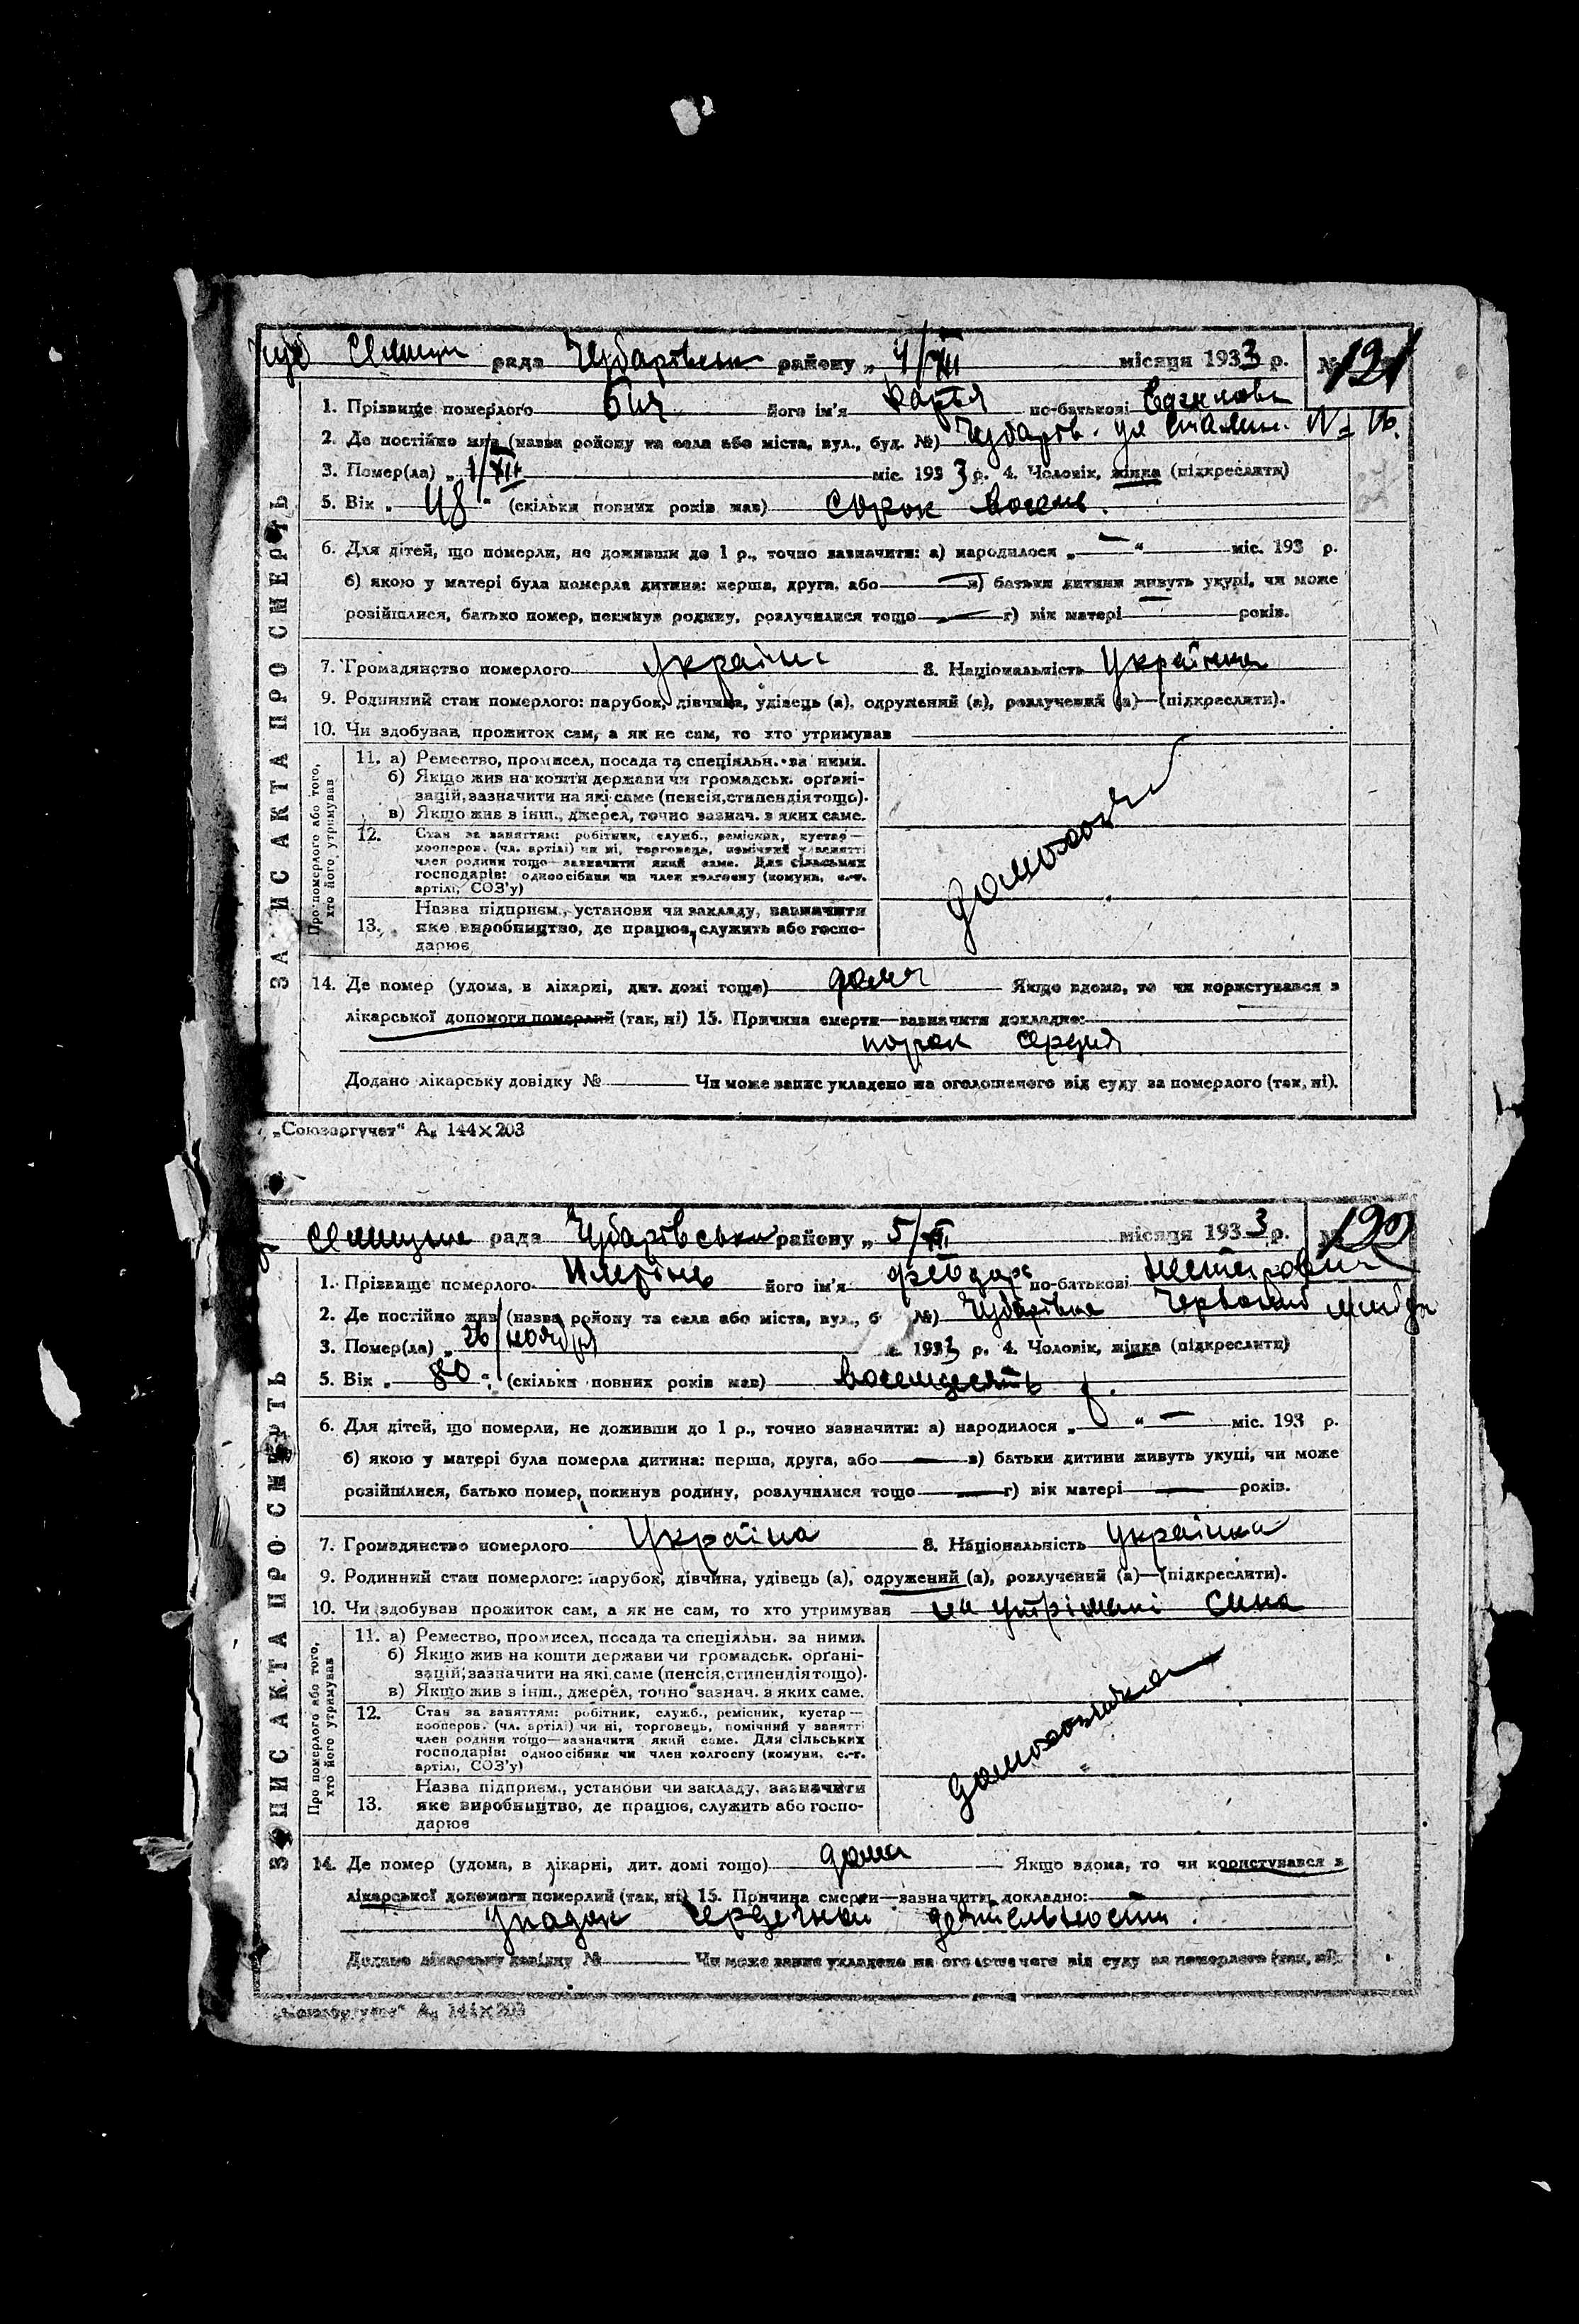 рада Чубарівськ району „ 4/XII місяця 1933 р. № 121
1. Прізвище померлого його ім'я по-батькові
2. Де постійно жив (назва району та села або міста, вул., буд. №) Чубарів. ул Сталин. № 16.
3. Помер(ла) „ 1/XII міс. 1933 р. 4. Чоловік, жінка (підкреслити)
5. Вік „ 48 " (скільки повних років мав) сорок восемь.
6. Для дітей, що померли, не доживши до 1 р., точно зазначити: а) народилося „ — " міс. 193 р.
б) якою у матері була померла дитина: перша, друга, або — в) батьки дитини живуть укупі, чи може
розійшлися, батько помер, покинув родину, розлучилися тощо — г) вік матері — років.
7. Громадянство померлого 8. Національність Українка
9. Родинний стан померлого: парубок, дівчина, удівець (а), одружений (а), розлучений (а)—(підкреслити).
10. Чи здобував прожиток сам, а як не сам, то хто утримував
ЗАПИС АКТА ПРО СМЕРТЬ
Про померлого або того, хто його утримував
11. а) Ремество, промисел, посада та спеціяльн. за ними.
б) Якщо жив на кошти держави чи громадськ. орґані-
зацій, зазначити на які саме (пенсія, стипендія тощо).
в) Якщо жив з інш., джерел, точно зазнач. з яких саме.
12. Стан за заняттям: робітник, служб., ремісник, кустар—
кооперов. (чл. артілі) чи ні, торговець, помічний у занятті
член родини тощо—зазначити який саме. Для сільських
господарів: одноосібник чи член колгоспу (комуни, с.-г.
артілі, СОЗ'у)
Назва підприєм., установи чи закладу, зазначити
13. яке виробництво, де працює, служить або госпо-
дарює
14. Де помер (удома, в лікарні, дит. домі тощо) дома Якщо вдома, то чи користувався з
лікарської допомоги померлий (так, ні) 15. Причина смерти—зазначити докладно:
порок сердця
Додано лікарську довідку № Чи може запис укладено на оголошеного від суду за померлого (так, ні).
„Союзоргучет" А₆ 144×203
рада Чубарівська району „ 5/XII місяця 1933 р. №
1. Прізвище померлого його ім'я по-батькові
2. Де постійно жив (назва району та села або міста, вул., б №) Чубарівка Червоний
3. Помер(ла) „ 26/ноября 1933 р. 4. Чоловік, жінка (підкреслити)
5. Вік „ 80 " (скільки повних років мав) восемдесять
6. Для дітей, що померли, не доживши до 1 р., точно зазначити: а) народилося „ " — міс. 193 р.
б) якою у матері була померла дитина: перша, друга, або — в) батьки дитини живуть укупі, чи може
розійшлися, батько помер, покинув родину, розлучилися тощо — г) вік матері — років.
7. Громадянство померлого Україна 8. Національність Українка
9. Родинний стан померлого: парубок, дівчина, удівець (а), одружений (а), розлучений (а)—(підкреслити).
10. Чи здобував прожиток сам, а як не сам, то хто утримував на утрімані сина
ЗАПИС АКТА ПРО СМЕРТЬ
Про померлого або того, хто його утримував
11. а) Ремество, промисел, посада та спеціяльн. за ними.
б) Якщо жив на кошти держави чи громадськ. орґані-
зацій, зазначити на які саме (пенсія, стипендія тощо).
в) Якщо жив з інш., джерел, точно зазнач. з яких саме.
домохозяйка
12. Стан за заняттям: робітник, служб., ремісник, кустар—
кооперов. (чл. артілі) чи ні, торговець, помічний у занятті
член родини тощо—зазначити який саме. Для сільських
господарів: одноосібник чи член колгоспу (комуни, с.-г.
артілі, СОЗ'у)
Назва підприєм., установи чи закладу, зазначити
13. яке виробництво, де працює, служить або госпо-
дарює
14. Де помер (удома, в лікарні, дит. домі тощо) дома Якщо вдома, то чи користувався з
лікарської допомоги померлий (так, ні) 15. Причина смерти—зазначити докладно:
упадок сердечной деятельности.
Додано лікарську довідку № Чи може запис укладено на оголошеного від суду за померлого (так, ні).
„Союзоргучет" А₆ 144×203